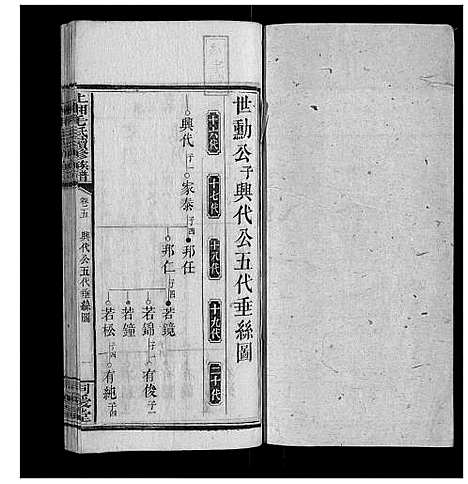 世勳公子興代公五代垂絲圖
十六代
十七代
十八代
十九代
二十代
興代 子一
家泰 子四
邦任
邦仁 子四
若鏡
若錦 子一
若鐘
若松 子四
有俊 子一
有純 子四
上湘毛氏續修族譜
卷五
興代公五代垂絲圖
一